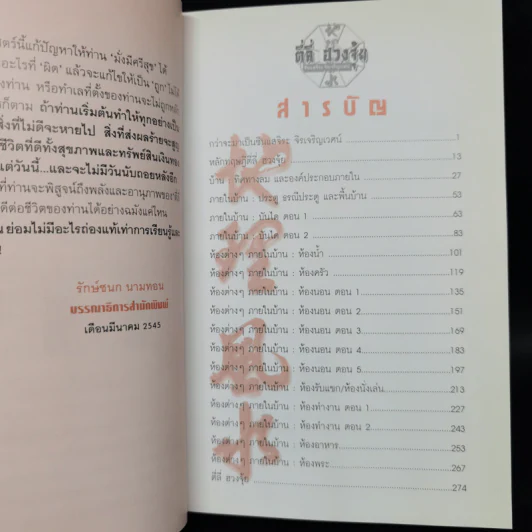 สตร์นี้แก้ปัญหาให้ท่าน 'มั่งมีศรีสุข' ได้
อะไรที่ 'ผิด' แล้วจะแก้ไขให้เป็น 'ถูก' ไม่ได้
งท่าน หรือทำเลที่ตั้งของท่านจะไม่ถูกหลัก
รก็ตาม ถ้าท่านเริ่มต้นทำให้ทุกอย่างเป็น
สิ่งที่ไม่ดีจะหายไป สิ่งที่ส่งผลร้ายจะสูญ
ชีวิตที่ดีทั้งสุขภาพและทรัพย์สินเงินทอง
แต่วันนี้...และจะไม่มีวันนับถอยหลังอีก
ที่ท่านจะพิสูจน์ถึงพลังและอานุภาพของ
ดีต่อชีวิตของท่านได้อย่างฉมังแค่ไหน
น ย่อมไม่มีอะไรถ่องแท้เท่าการเรียนรู้และ
รักษ์ชนก นามทอน
บรรณาธิการสำนักพิมพ์
เดือนมีนาคม 2545
ตี่ลี่ ฮวงจุ้ย
สารบัญ
กว่าจะมาเป็นซินแสจิระ จิรเจริญเวศน์ 1
หลักทฤษฎีตี่ลี่ ฮวงจุ้ย 13
บ้าน : ทิศทางลม และองค์ประกอบภายใน 27
ภายในบ้าน : ประตู ธรณีประตู และพื้นบ้าน 53
ภายในบ้าน : บันได ตอน 1 63
ภายในบ้าน : บันได ตอน 2 83
ห้องต่างๆ ภายในบ้าน : ห้องน้ำ 101
ห้องต่างๆ ภายในบ้าน : ห้องครัว 119
ห้องต่างๆ ภายในบ้าน : ห้องนอน ตอน 1 135
ห้องต่างๆ ภายในบ้าน : ห้องนอน ตอน 2 151
ห้องต่างๆ ภายในบ้าน : ห้องนอน ตอน 3 169
ห้องต่างๆ ภายในบ้าน : ห้องนอน ตอน 4 183
ห้องต่างๆ ภายในบ้าน : ห้องนอน ตอน 5 197
ห้องต่างๆ ภายในบ้าน : ห้องรับแขก/ห้องนั่งเล่น 213
ห้องต่างๆ ภายในบ้าน : ห้องทำงาน ตอน 1 227
ห้องต่างๆ ภายในบ้าน : ห้องทำงาน ตอน 2 243
ห้องต่างๆ ภายในบ้าน : ห้องอาหาร 253
ห้องต่างๆ ภายในบ้าน : ห้องพระ 267
ตี่ลี่ ฮวงจุ้ย 274